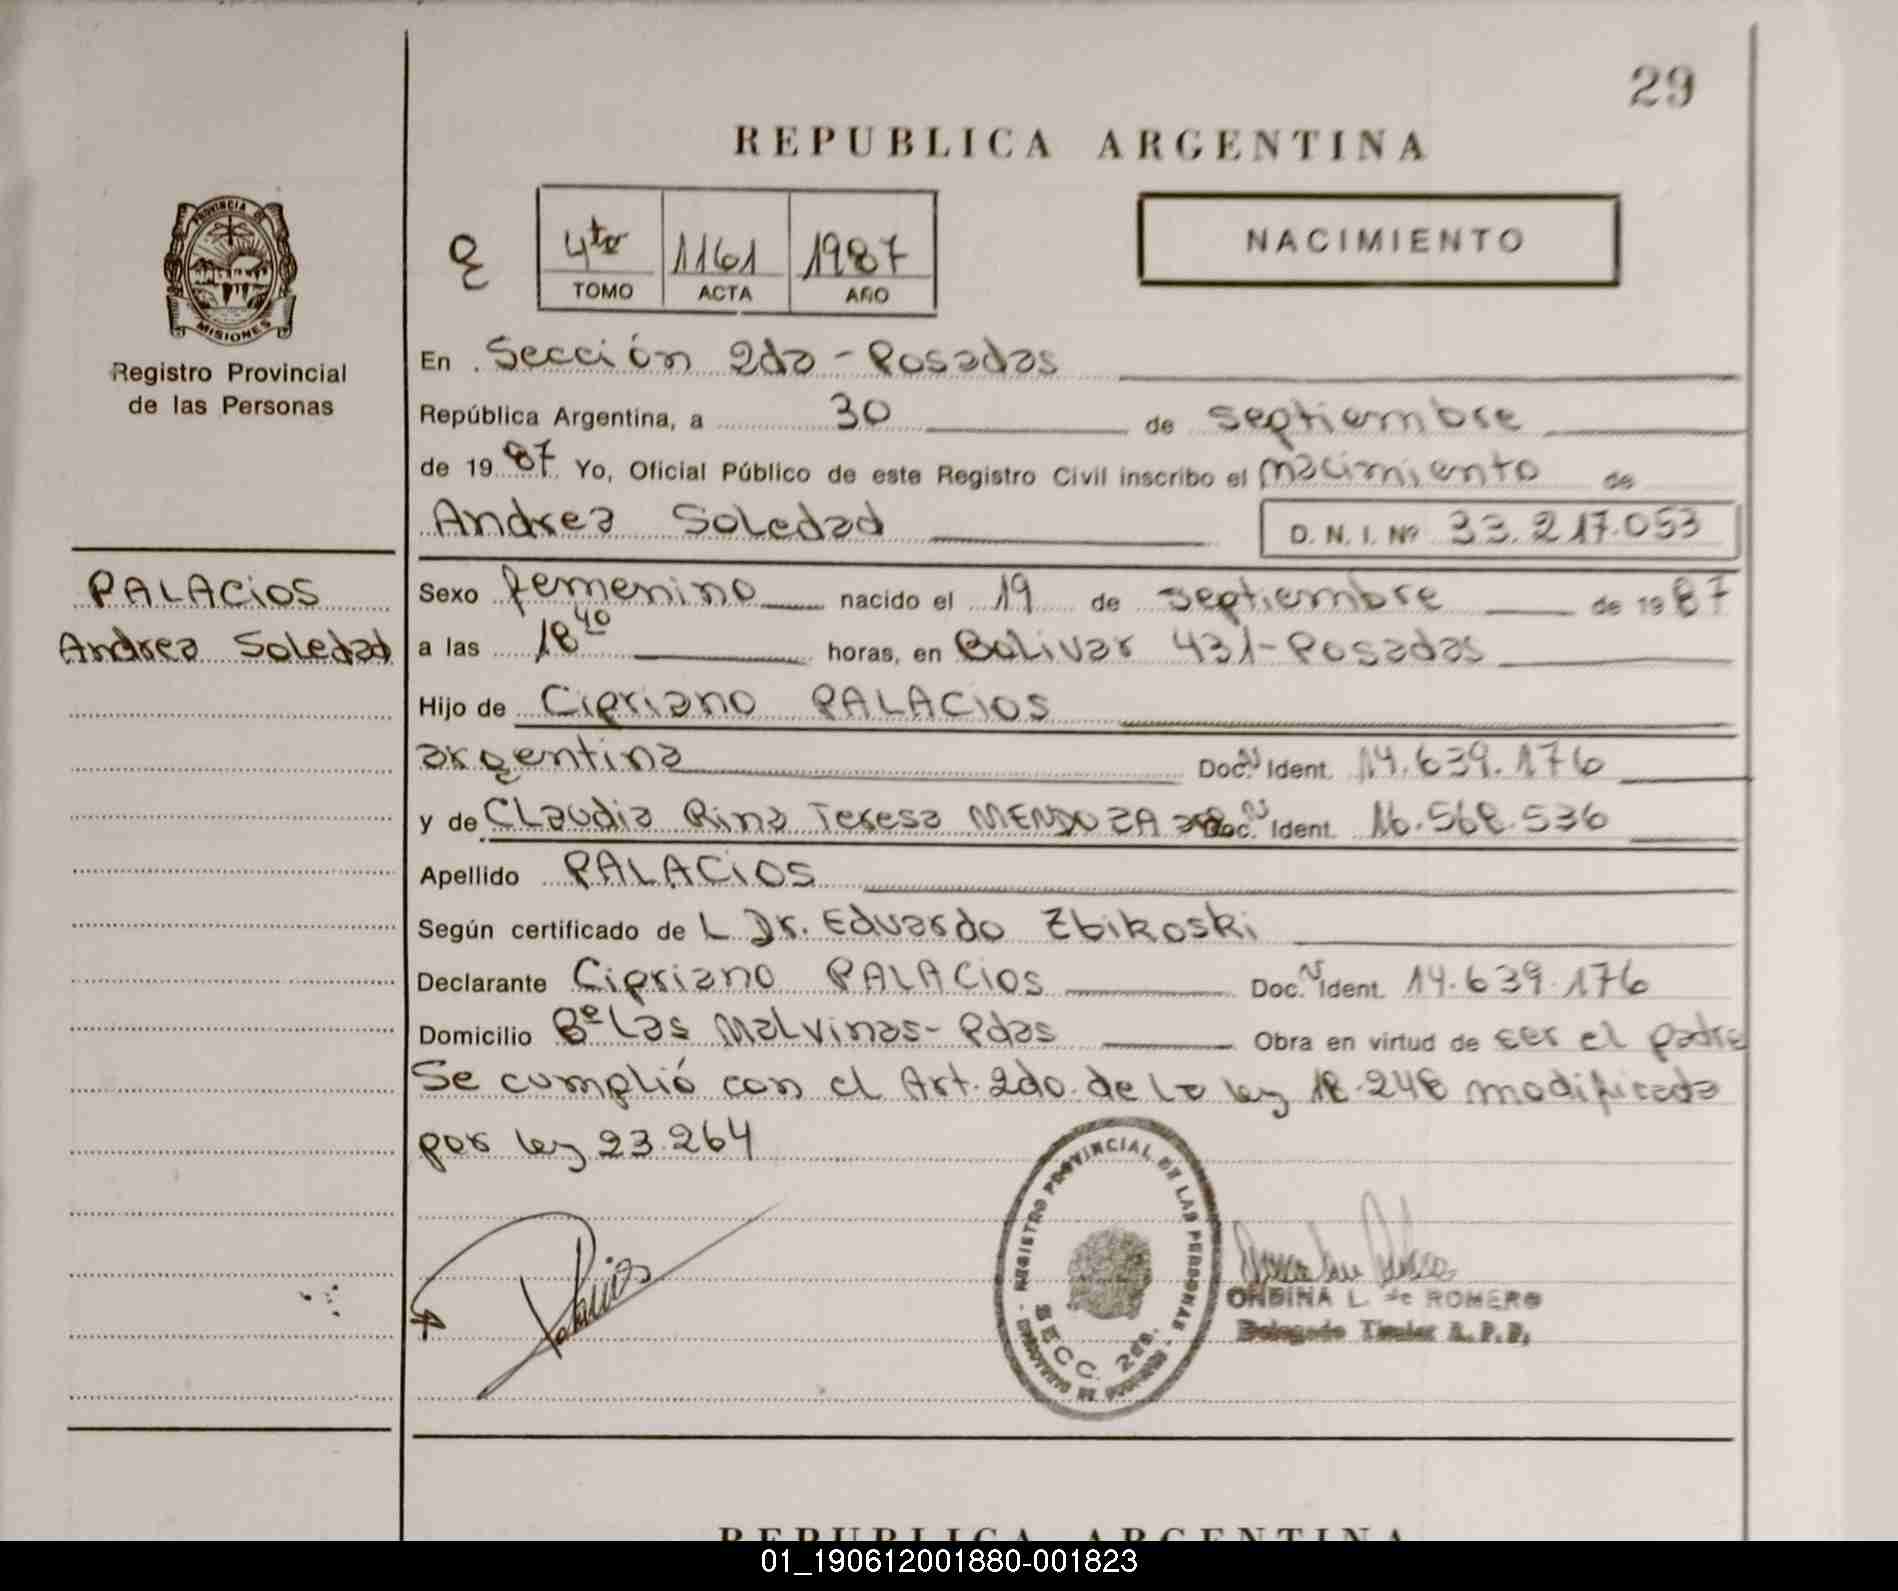 29
REPUBLICA ARGENTINA
PROVINCIA DE
MISIONES
Registro Provincial
de las Personas
4to 1161 1987
TOMO ACTA AÑO
NACIMIENTO
En Sección 2da - Posadas
República Argentina, a 30 de septiembre
de 1987 Yo, Oficial Público de este Registro Civil inscribo el nacimiento de
Andrea Soledad D. N. I. Nº 33.217.053
PALACIOS
Andrea Soledad
Sexo femenino nacido el 19 de septiembre de 1987
a las 18 40 horas, en Bolivar 431 - Posadas
Hijo de Cipriano PALACIOS
argentina Doc. N Ident. 14.639.176
y de Claudia Rina Teresa MENDOZA Doc. N Ident. 16.568.536
Apellido PALACIOS
Según certificado de L Dr. Eduardo Zbikoski
Declarante Cipriano PALACIOS Doc. N Ident. 14.639.176
Domicilio Bº Las Malvinas - Pdas Obra en virtud de ser el padre
Se cumplió con el Art. 2do. de la ley 18.248 modificada
por ley 23.264
REGISTRO PROVINCIAL DE LAS PERSONAS
SECC. 2da.
ONDINA L. de ROMERO
Delegado Titular R. P. P.
REPUBLICA ARGENTINA
01_190612001880-001823